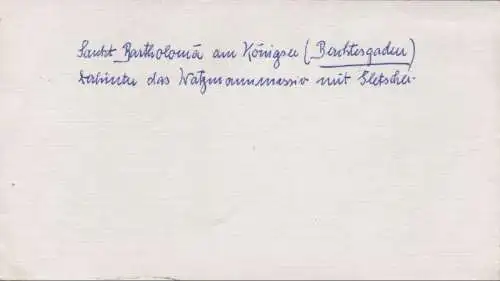 Sankt Bartholomä am Königsee (Berchtesgaden)
dahinter das Watzmannmassiv mit Gletscher.